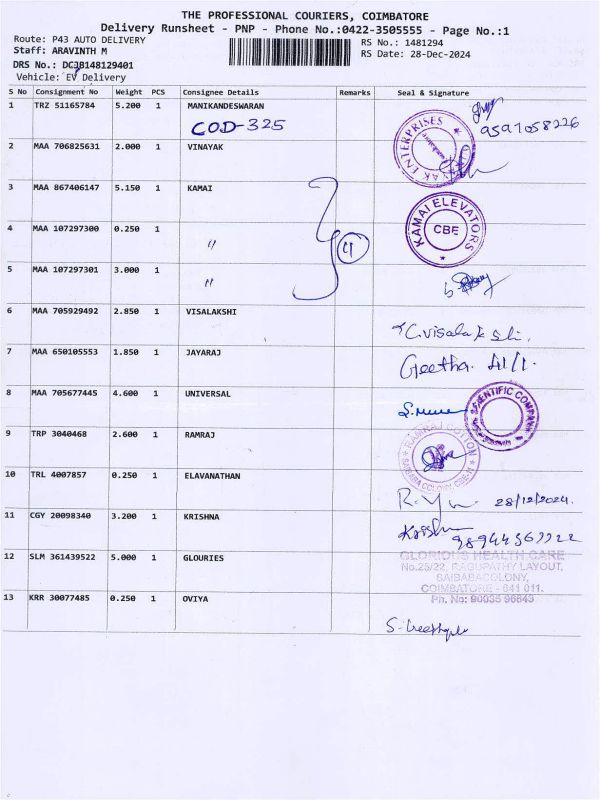 THE PROFESSIONAL COURIERS, COIMBATORE
Delivery Runsheet - PNP - Phone No.:0422-3505555 - Page No.:1
Route: P43 AUTO DELIVERY
RS No.: 1481294
Staff: ARAVINTH M
RS Date: 28-Dec-2024
DRS No.: DC3B148129401
Vehicle: EV Delivery
S No Consignment No Weight PCS Consignee Details Remarks Seal & Signature
1 TRZ 51165784 5.200 1 MANIKANDESWARAN
COD-325
2 MAA 706825631 2.000 1 VINAYAK
ENTERPRISES
3 MAA 867406147 5.150 1 KAMAI
KAMAI ELEVATORS
CBE
4 MAA 107297300 0.250 1 "
5 MAA 107297301 3.000 1 "
6 MAA 705929492 2.850 1 VISALAKSHI
C.Visalakshi.
7 MAA 650105553 1.850 1 JAYARAJ
Geetha
8 MAA 705677445 4.600 1 UNIVERSAL
9 TRP 3040468 2.600 1 RAMRAJ
RAMRAJ COTTON
SAIBABA COLONY, CBE-11
10 TRL 4007857 0.250 1 ELAVANATHAN
28/12/2024.
11 CGY 20098340 3.200 1 KRISHNA
Krishna
12 SLM 361439522 5.000 1 GLOURIES
GLORIOUS HEALTH CARE
No.25/22, RAGUPATHY LAYOUT,
SAIBABACOLONY,
COIMBATORE - 641 011.
Ph. No: 90035 96843
13 KRR 30077485 0.250 1 OVIYA